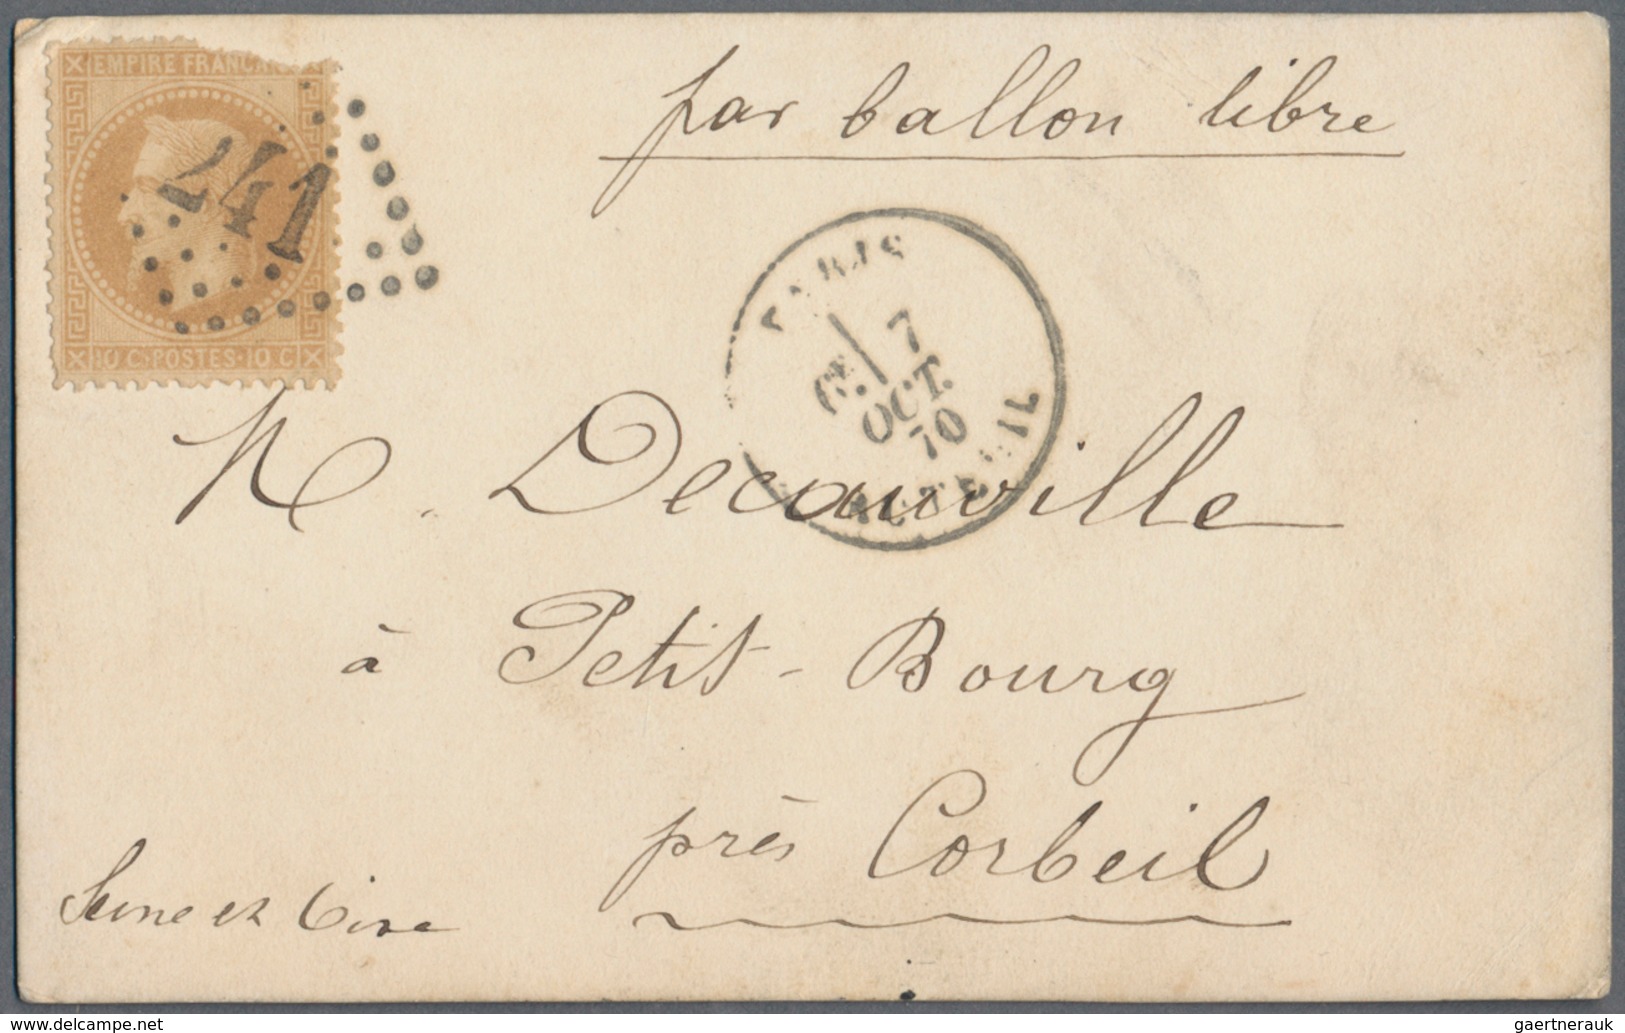 par ballon libre
EMPIRE FRANÇAIS
241
10 C·POSTES·10 C
PARIS
7
6E
OCT.
70
M. Decauville
à Petit-Bourg
près Corbeil
Seine et Oise
gaertnerauk